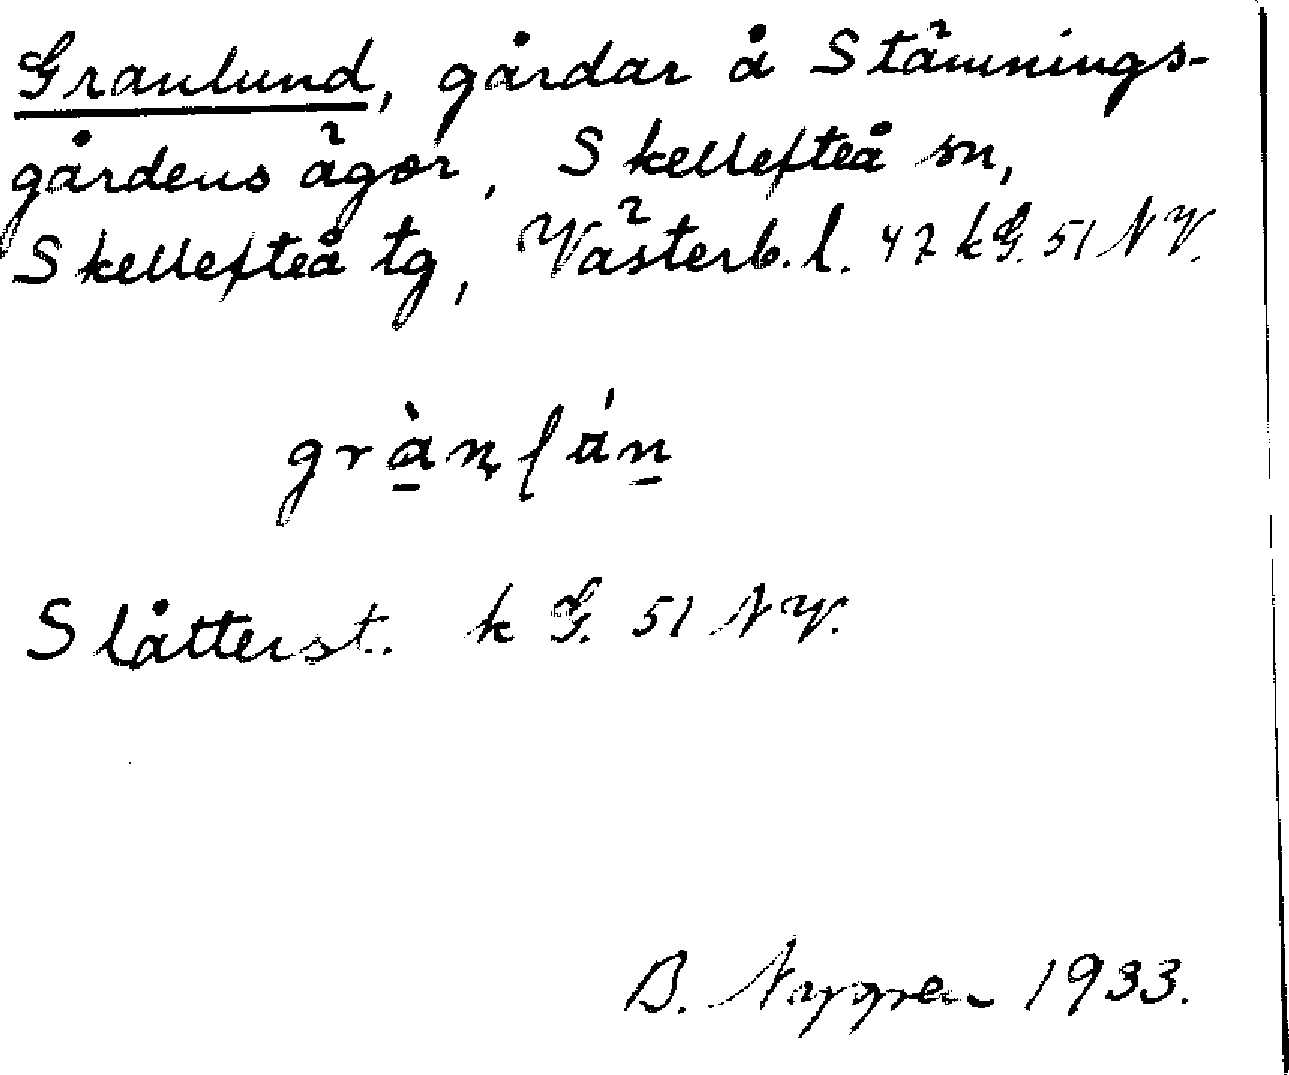 Granlund, gårdar å Stämnings-
gårdens ägor, Skellefteå sn,
Skellefteå tg, Västerb. l. 42 k G. 51 NV.
Slåtterst. k G. 51 NV.
B. Nygren 1933.